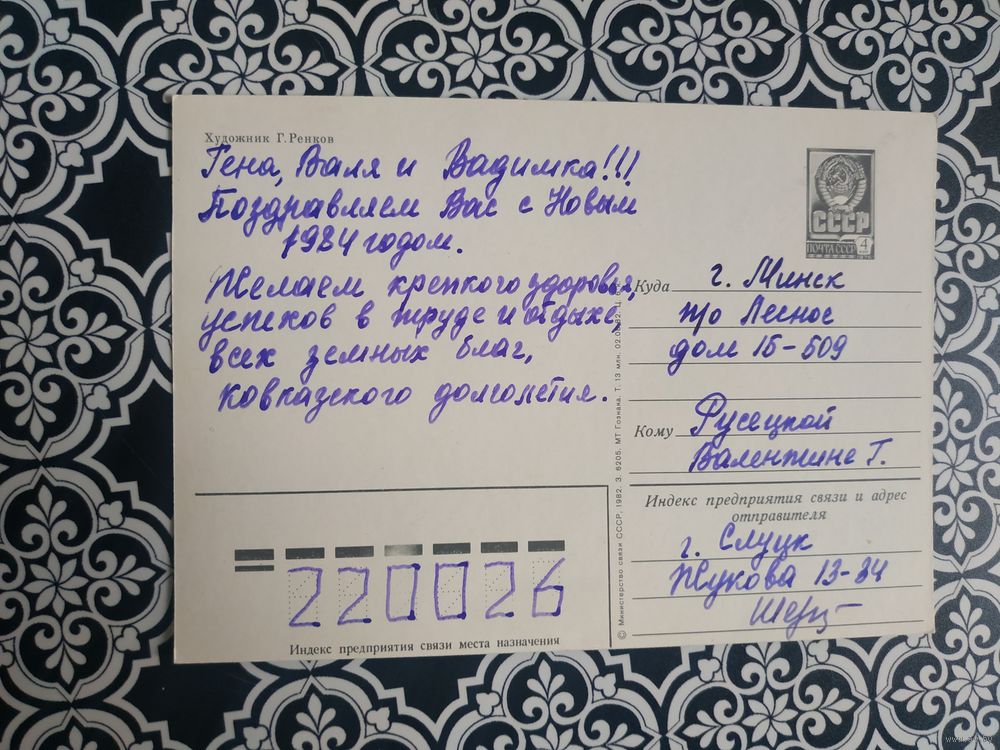 Художник Г. Ренков
Гена, Валя и Вадимка!!!
Поздравляем Вас с Новым
1984 годом.
Желаем крепкого здоровья,
успехов в труде и отдыхе,
всех земных благ,
Ковказского долголетия.
СССР
ПОЧТА СССР 4
Куда г. Минск
п/о Лесное
дом 15-509
Кому Русецкой
Валентине Г.
Индекс предприятия связи и адрес
отправителя
г. Слуцк
Жукова 13-84
220026
Индекс предприятия связи места назначения
© Министерство связи СССР, 1982. З. 6205. МТ Гознака. Т. 13 млн.